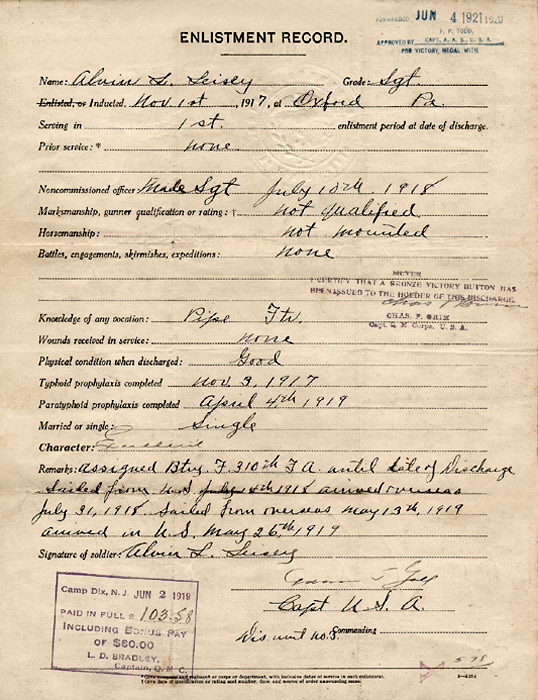 FORWARDED JUN 4 1921
F. P. TODD,
APPROVED BY CAPT. A. A. U. S. A.
FOR VICTORY MEDAL WITH
ENLISTMENT RECORD.
Name: Alvin L. Seisey Grade: Sgt
Enlisted, or Inducted, Nov 1st, 1917, at Oxford Pa.
Serving in 1st. enlistment period at date of discharge.
Prior service: * none
Noncommissioned officer Made Sgt July 10th, 1918
Marksmanship, gunner qualification or rating: † not qualified
Horsemanship: not mounted
Battles, engagements, skirmishes, expeditions: none
SILVER
I CERTIFY THAT A BRONZE VICTORY BUTTON HAS
BEEN ISSUED TO THE HOLDER OF THIS DISCHARGE.
CHAS. P. GRIM
Capt. Q. M. Corps, U. S. A.
Knowledge of any vocation: Pipe Ftr.
Wounds received in service: none
Physical condition when discharged: Good
Typhoid prophylaxis completed Nov. 3, 1917
Paratyphoid prophylaxis completed April 4th 1919
Married or single: Single
Character: Excellent
Remarks: Assigned Btry F. 310th F A. until date of Discharge
Sailed from U.S. July 4th 1918 arrived overseas
July 31, 1918. Sailed from overseas May 13th, 1919
arrived in U.S. May 26th 1919
Signature of soldier: Alvin L. Seisey
Capt U.S.A.
Commanding
Camp Dix, N. J. JUN 2 1919
PAID IN FULL $ 103.58
INCLUDING BONUS PAY
OF $60.00
L. D. BRADLEY,
Captain, Q. M. C.
578
3—3164
* Give company and regiment or corps or department, with inclusive dates of service in each enlistment.
† Give date of qualification or rating and number, date, and source of order announcing same.